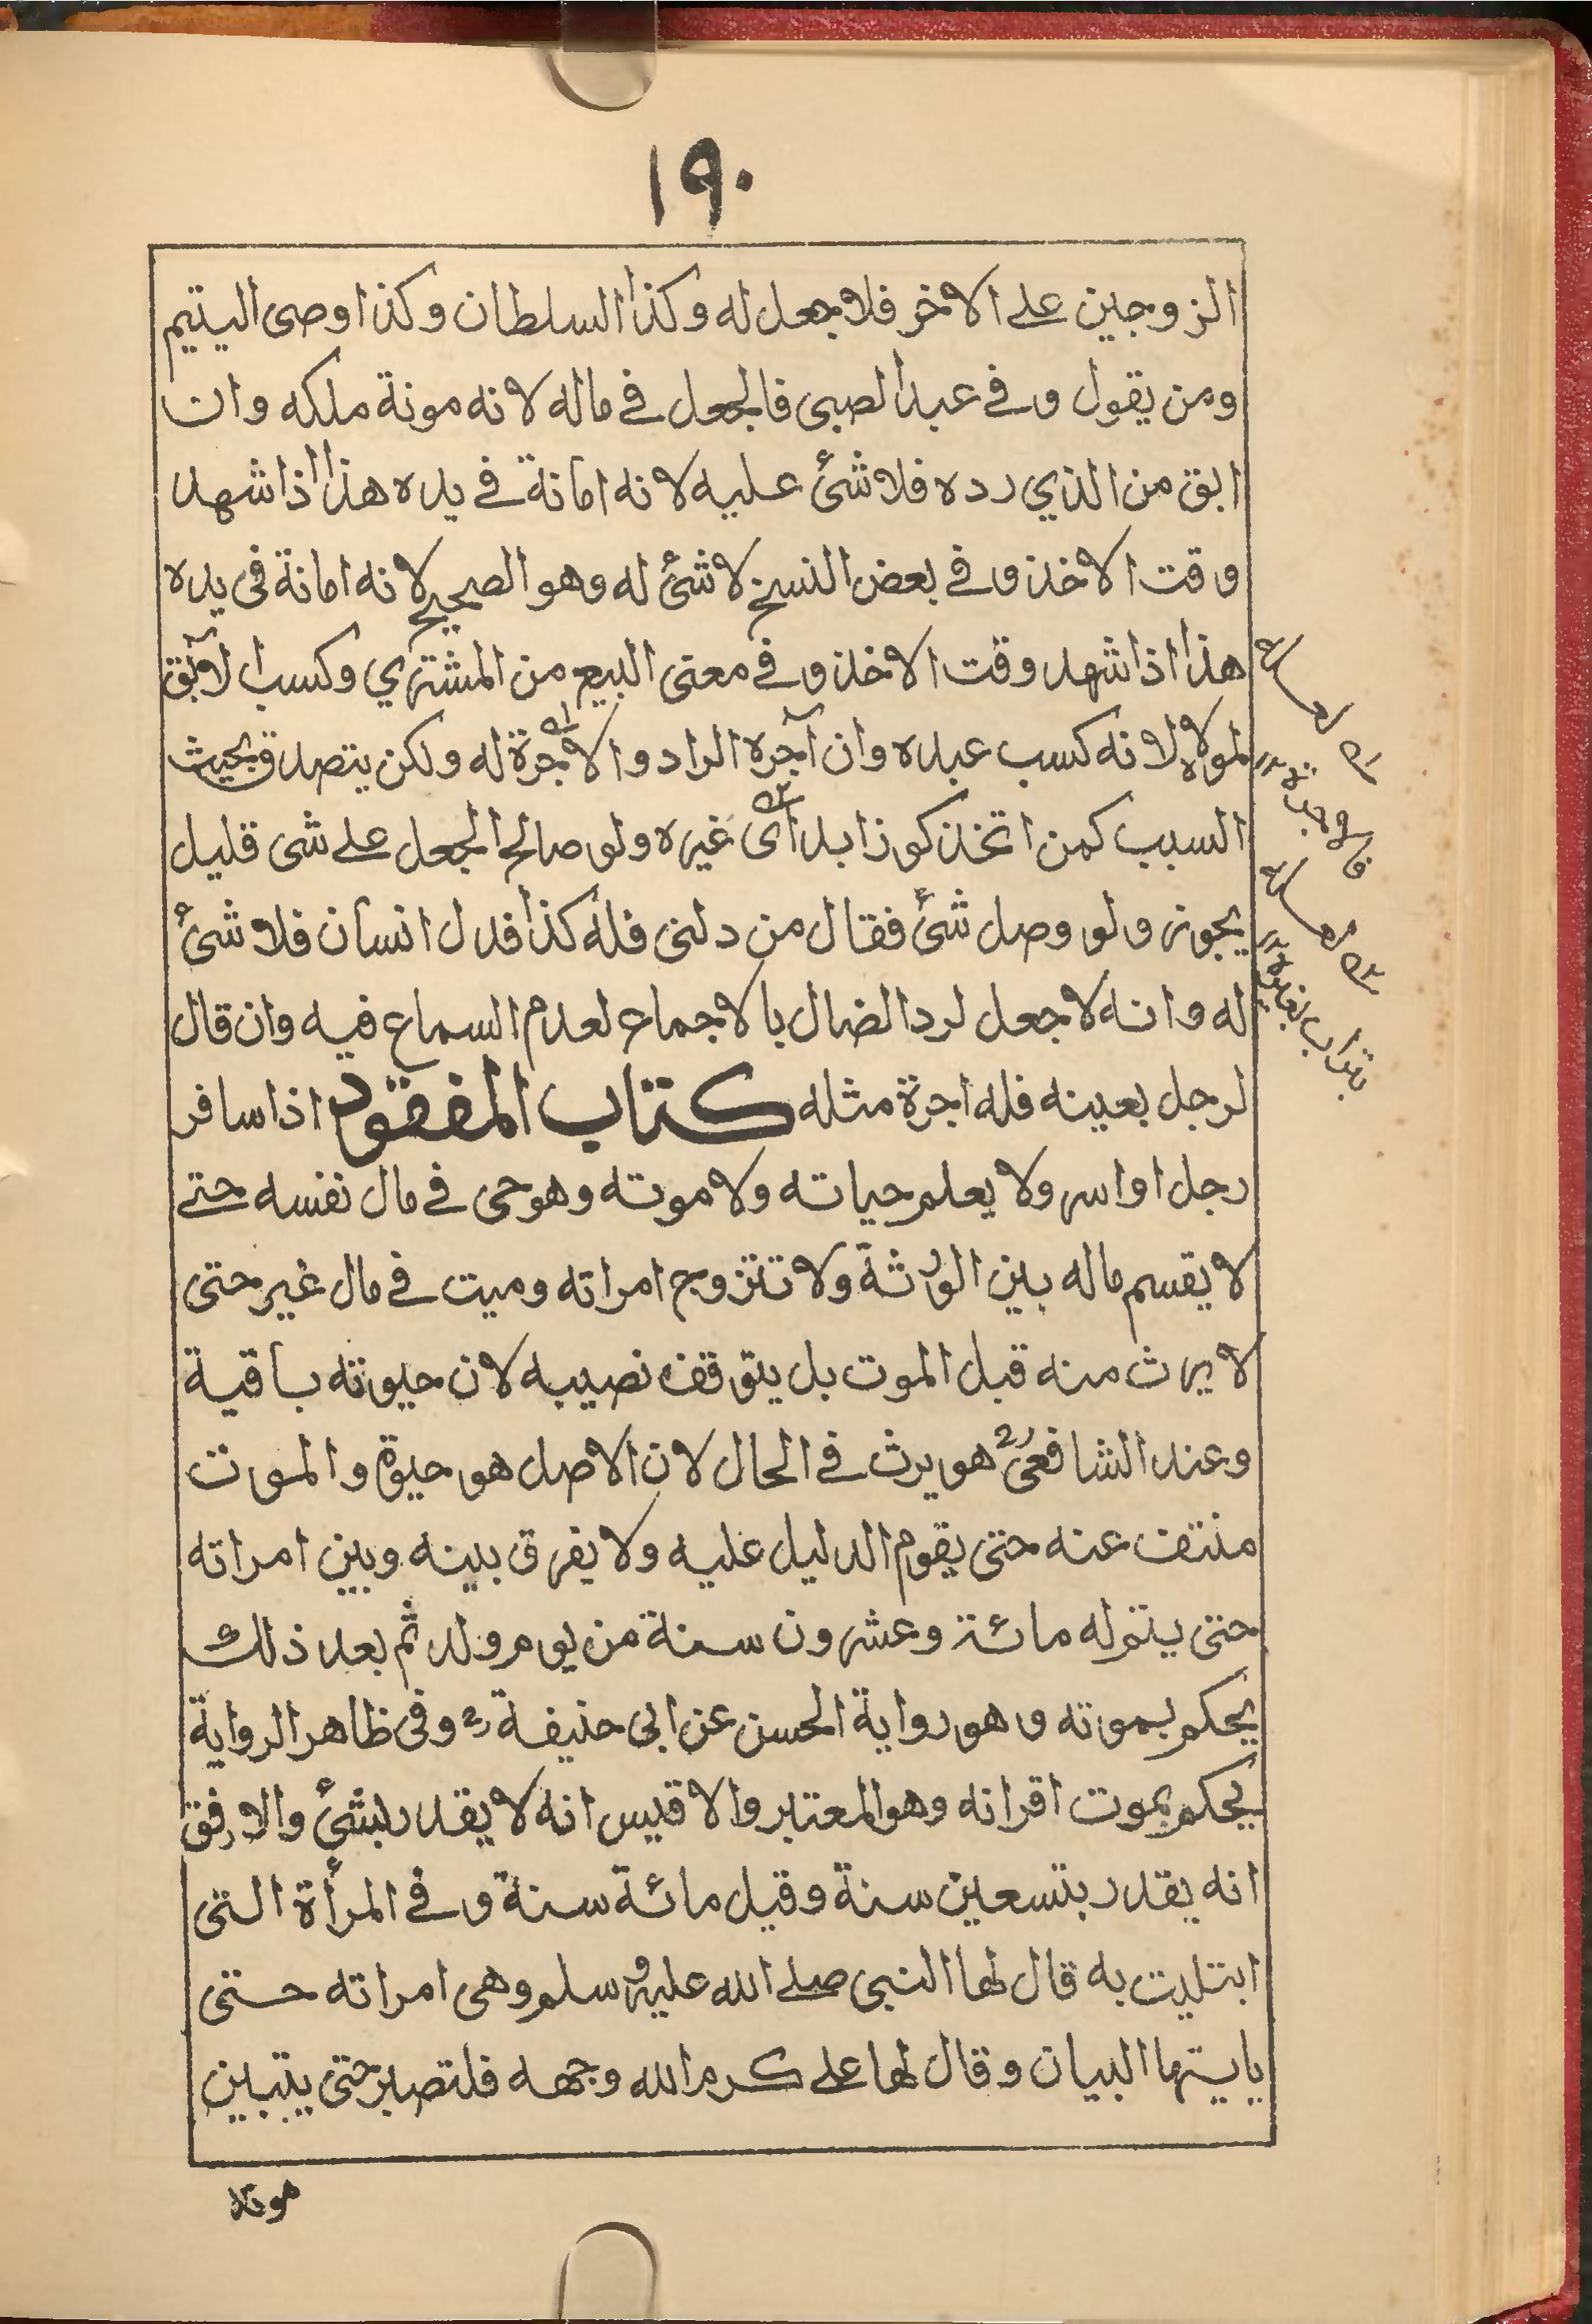 ١٩٠
الزوجين على الاخر فلا جعل له وكذا السلطان وكذا وصى اليتيم
ومن يقول وفى عبد الصبى فالجعل فى ماله لانه مونة ملكه وان
ابق من الذي رده فلا شئ عليه لانه امانة فى يده هذا اذا شهد
وقت الاخذ وفى بعض النسخ لا شئ له وهو الصحيح لانه امانة فى يده
هذا اذا شهد وقت الاخذ وفى معنى البيع من المشتري وكسب الآبق
لمولاه لانه كسب عبده وان آجره الراد والاجرة له ولكن يتصدق بحيث
السبب كمن اتخذ كوزا بدأى غيره ولو صالح الجعل على شى قليل
يجوز ولو وصل شئ فقال من دلنى فله كذا فدل انسان فلا شئ
له وانه لا جعل لرد الضال بالاجماع لعدم السماع فيه وان قال
لرجل بعينه فله اجرة مثله كتاب المفقود اذا سافر
رجل او اسر ولا يعلم حياته ولا موته وهو حى فى مال نفسه حتى
لا يقسم ماله بين الورثة ولا تتزوج امراته وميت فى مال غير حتى
لا يرث منه قبل الموت بل يتوقف نصيبه لان حيوته باقية
وعند الشافعىؒ هو يرث فى الحال لان الاصل هو حيوة والموت
منتف عنه حتى يقوم الدليل عليه ولا يفرق بينه وبين امراته
حتى يتم له مائة وعشرون سنة من يوم ولد ثم بعد ذلك
يحكم بموته وهو رواية الحسن عن ابى حنيفةؒ وفى ظاهر الرواية
يحكم بموت اقرانه وهو المعتبر والاقيس انه لا يقدر بشئ والارفق
انه يقدر بتسعين سنة وقيل مائة سنة وفى المرأة التى
ابتليت به قال لها النبى صلى الله عليه وسلم وهى امراته حتى
ياتيها البيان وقال لها على كرم الله وجهه فلتصبر حتى يتبين
موته
بتراب غيره